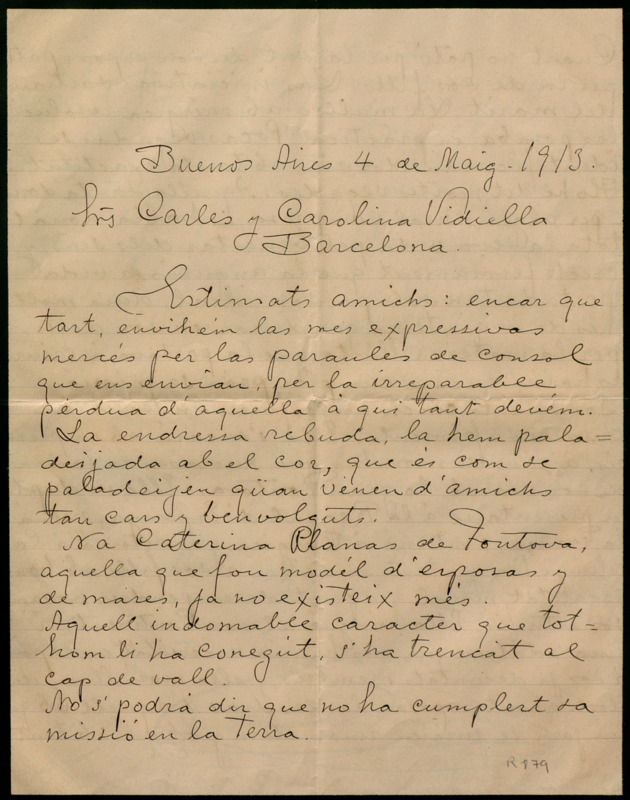 Buenos Aires 4 de Maig - 1913.
Srs Carles y Carolina Vidiella
Barcelona.
Estimats amichs: encar que
tart, envihém las mes expressivas
mercés per las paraules de consol
que ens envian, per la irreparable
pérdua d'aquella à qui tant devém.
La endressa rebuda, la hem pala=
deijada ab el cor, que és com se
paladeijen qüan vénen d'amichs
tan cars y benvolguts.
Na Caterina Planas de Fontova,
aquella que fou modél d'esposas y
de mares, ja no existeix més.
Aquell indomable caracter que tot=
hom li ha conegút, s'ha trencat al
cap de vall.
No s' podrá dir que no ha cumplert sa
missió en la Terra.
R 879